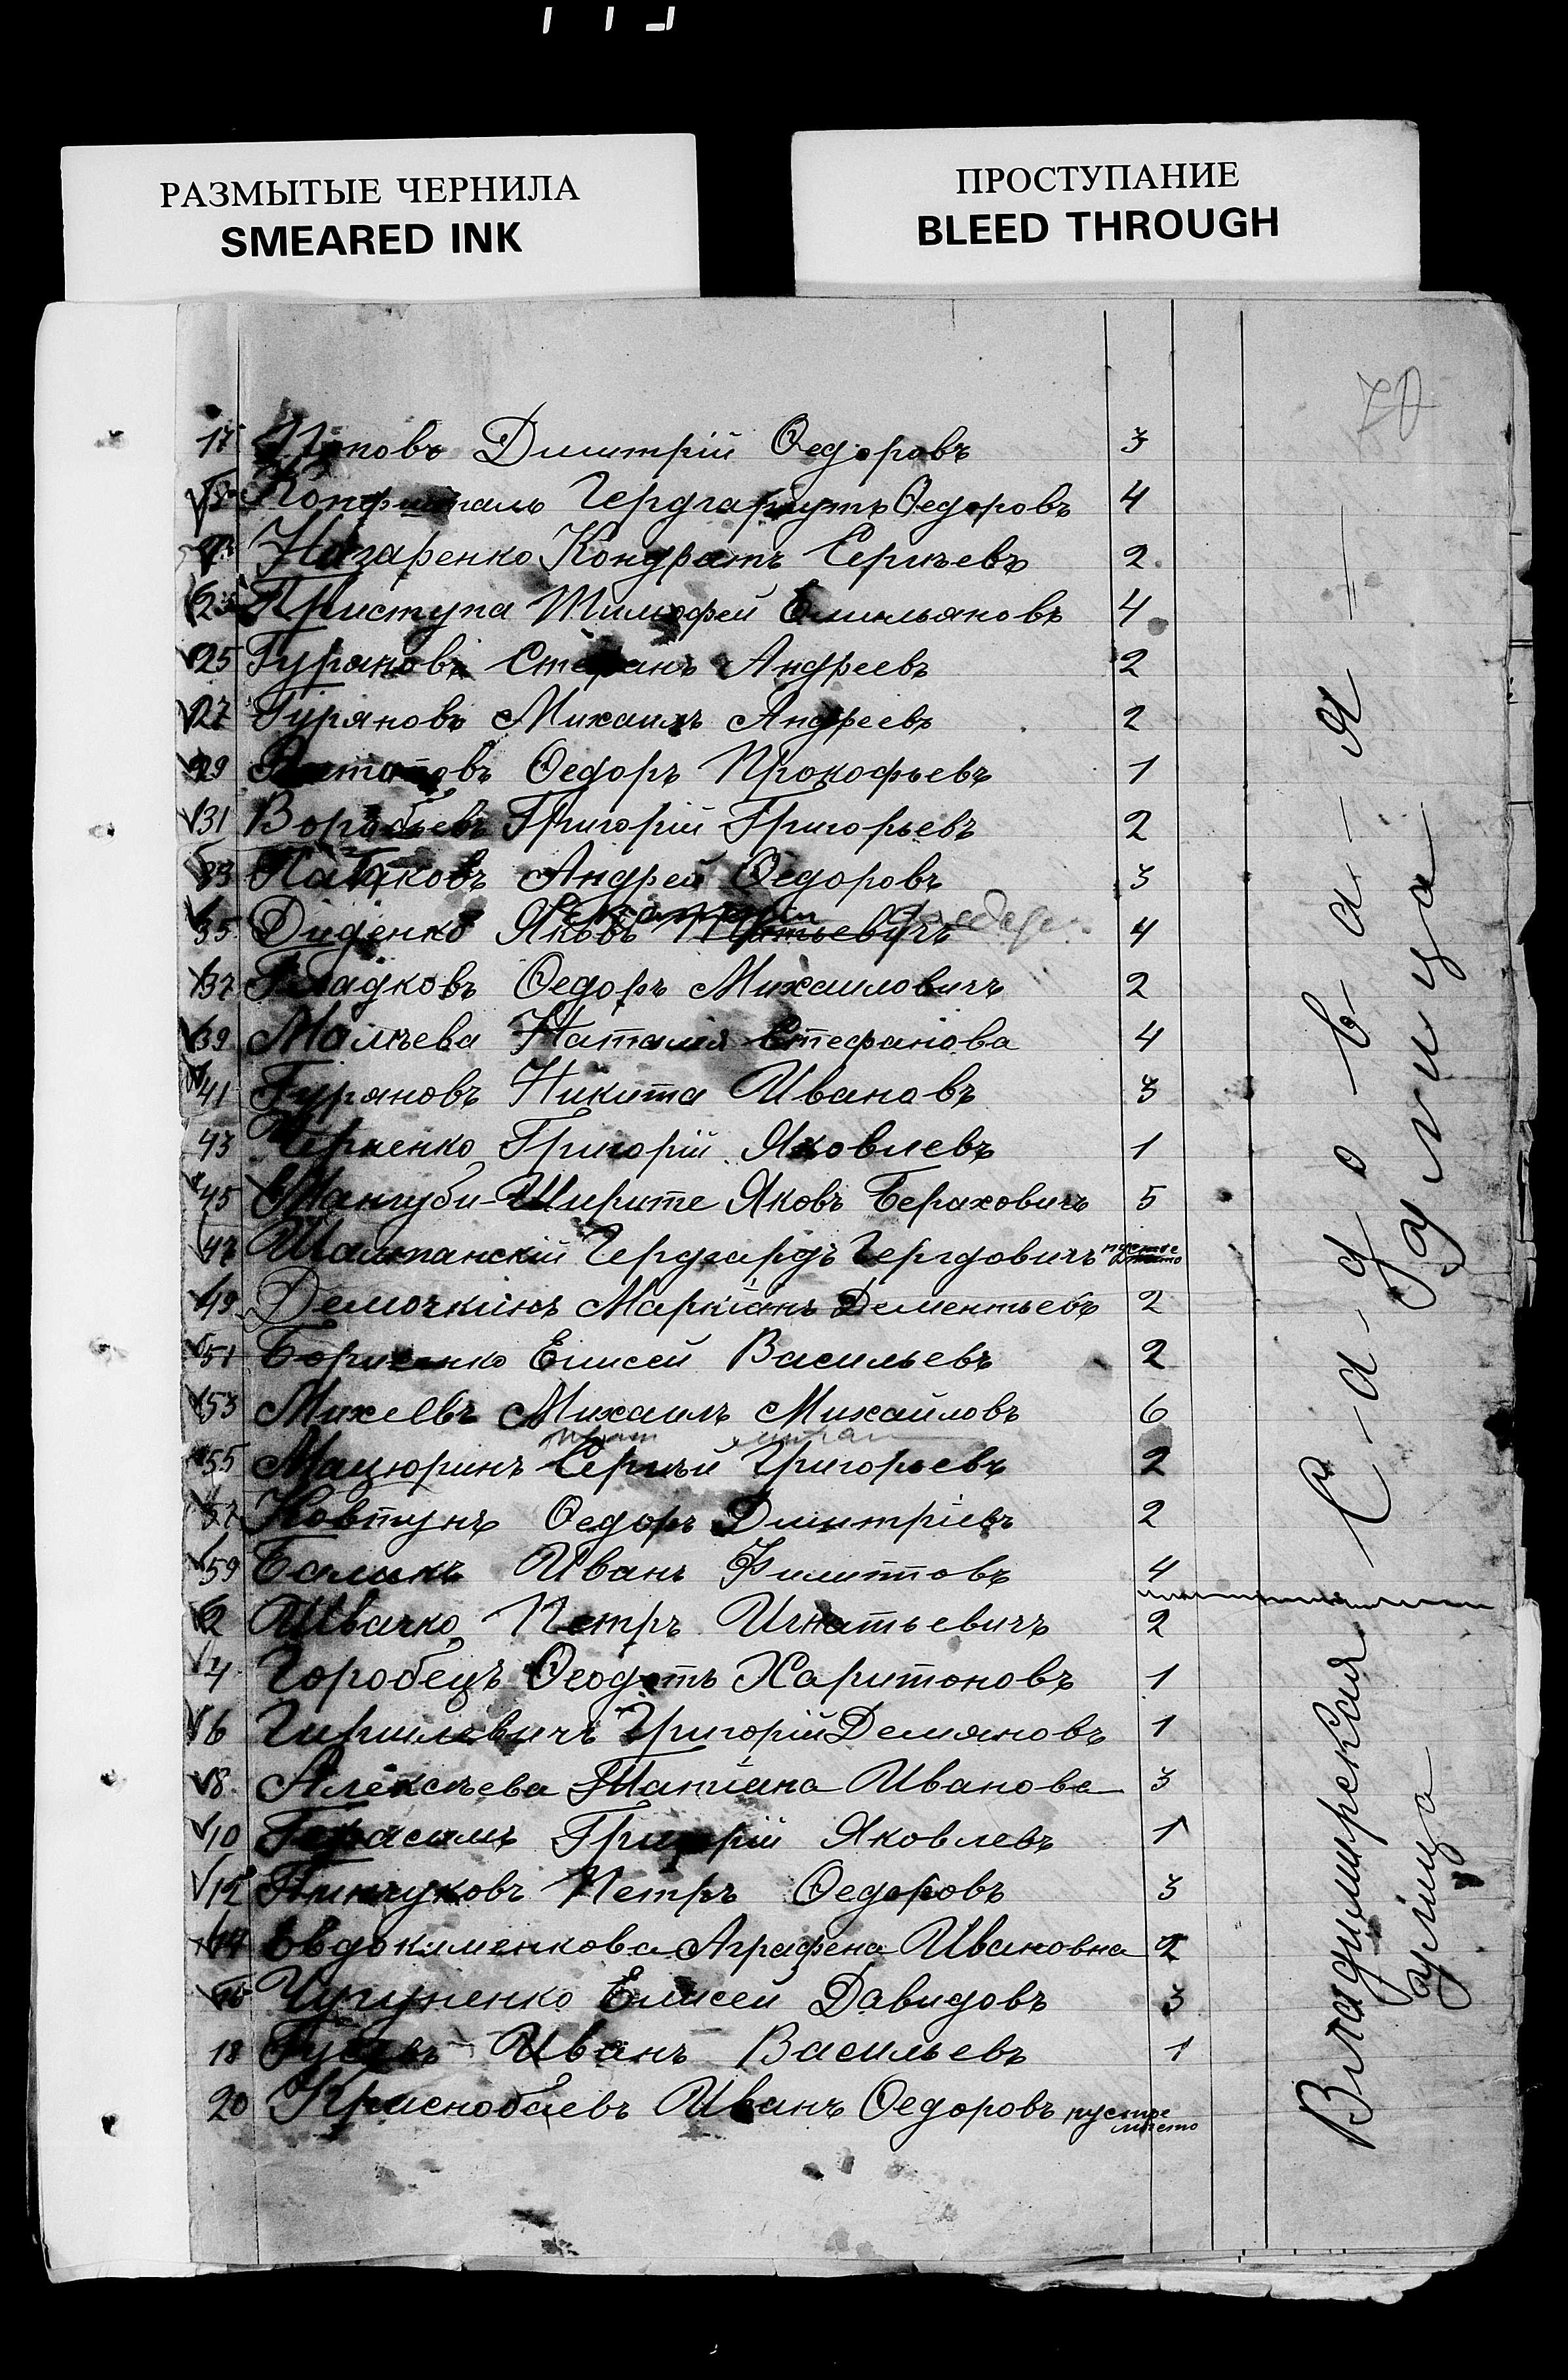 РАЗМЫТЫЕ ЧЕРНИЛА
SMEARED INK
ПРОСТУПАНИЕ
BLEED THROUGH
70
17 Поповъ Димитрій Ѳедоровъ 3
Ѳедоровъ 4
Назаренко Кондратъ Сергѣевъ 2
23 Приступа Тимофей Емильяновъ 4
25 Гуряновъ Стефанъ Андреевъ 2
27 Гуряновъ Михаилъ Андреевъ 2
29 Ѳедоръ Прокофьевъ 1
31 Воробьевъ Григорій Григорьевъ 2
33 Андрей Ѳедоровъ 3
35 Диденко Яковъ 4
37 Гладковъ Ѳедоръ Михаиловичъ 2
39 Наталія Стефанова 4
41 Гуряновъ Никита Ивановъ 3
43 Григорій Яковлевъ 1
45 Мангуби-Ширите Яковъ Бераховичъ 5
47 Шампанскій Гердгардъ пустое мѣсто
49 Демочкинъ Маркіанъ Дементьевъ 2
51 Борисенко Елисей Васильевъ 2
53 Михеевъ Михаилъ Михайловъ 6
55 Мацюринъ Сергѣй Григорьевъ 2
57 Ковтунъ Ѳедоръ Димитріевъ 2
59 Балыкъ Иванъ Филиповъ 4
2 Швачко Петръ Игнатьевичъ 2
4 Горобецъ Ѳеодотъ Харитоновъ 1
6 Гиршевичъ Григорій Демяновъ 1
8 Алексѣева Татіана Иванова 3
10 Герасимъ Григорій Яковлевъ 1
12 Пинчуковъ Петръ Ѳедоровъ 3
14 Евдокименкова Аграфена Ивановна 2
16 Чугуненко Елисей Давидовъ 3
18 Гусевъ Иванъ Васильевъ 1
20 Краснобаевъ Иванъ Ѳедоровъ пустое мѣсто
С-а-д-о-в-а-я
улица
Владимирская
улица